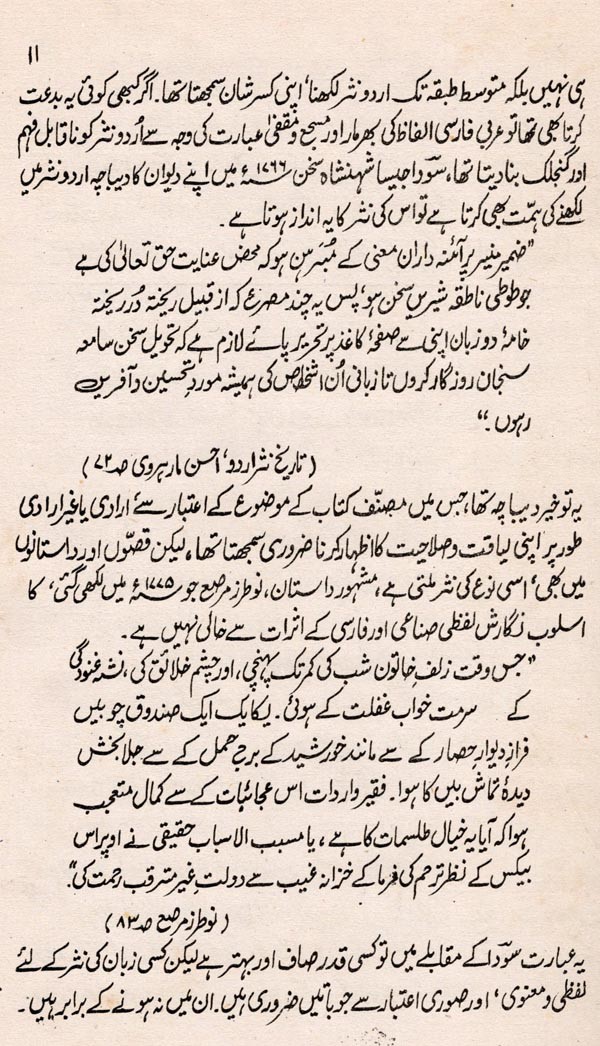 ۱۱
ہی نہیں بلکہ متوسط طبقہ تک اردو نثر لکھنا، اپنی کسر شان سمجھتا تھا۔ اگر کبھی کوئی یہ بدعت
کرتا بھی تھا تو عربی فارسی الفاظ کی بھرمار اور مسجع و مقفیٰ عبارت کی وجہ سے اُردو نثر کو ناقابل فہم
اور گنجلک بنا دیتا تھا، سوؔدا جیسا شہنشاہ سخن ۱۷۶۶ء میں اپنے دیوان کا دیباچہ اردو نثر میں
لکھنے کی ہمّت بھی کرتا ہے تو اس کی نثر کا یہ انداز ہوتا ہے۔
”ضمیر منیر پر آئنہ داران معنی کے مُبَرہن ہو کہ محض عنایت حق تعالیٰ کی ہے
جو طوطی ناطقہ شیریں سخن ہو، پس یہ چند مصرع کہ از قبیل ریختہ دُر ریختہ
خامۂ دو زبان اپنی سے صفحۂ کاغذ پر تحریر پائے لازم ہے کہ تحویل سخن سامعہ
سنجان روزگار کروں تا زبانی اُن اشخاص کی ہمیشہ مورد تحسین و آفریں
رہوں۔“
(تاریخ نثر اردو، احسن مارہروی صہ ۷۲)
یہ تو خیر دیباچہ تھا، جس میں مصنّف کتاب کے موضوع کے اعتبار سے، ارادی یا غیر ارادی
طور پر اپنی لیاقت و صلاحیت کا اظہار کرنا ضروری سمجھتا تھا، لیکن قصّوں اور داستانوں
میں بھی، اسی نوع کی نثر ملتی ہے، مشہور داستان، نوطرز مرصع جو ۱۷۷۵ء میں لکھی گئی، کا
اسلوب نگارش لفظی صناعی اور فارسی کے اثرات سے خالی نہیں ہے۔
”جس وقت زلفِ خاتون شب کی کمر تک پہنچی، اور چشم خلائق کی، نشہ غنودگی
کے سرمت خواب غفلت کے ہوئی۔ یکایک ایک صندوق چوبیں
فرازِ دیوارِ حصار کے سے مانند خورشید کے برج حمل کے سے جلا بخش
دیدۂ تماش بیں کا ہوا۔ فقیر واردات اس عجائبات کے سے کمال متعجب
ہوا کہ آیا یہ خیال طلسمات کا ہے، یا مسبب الاسباب حقیقی نے اوپر اس
بیکس کے نظر ترحم کی فرما کے خزانہ غیب سے دولت غیر مترقب رحمت کی۔“
(نوطرز مرصع صہ ۸۳)
یہ عبارت سوؔدا کے مقابلے میں تو کسی قدر صاف اور بہتر ہے لیکن کسی زبان کی نثر کے لئے
لفظی و معنوی، اور صوری اعتبار سے جو باتیں ضروری ہیں۔ ان میں نہ ہونے کے برابر ہیں۔